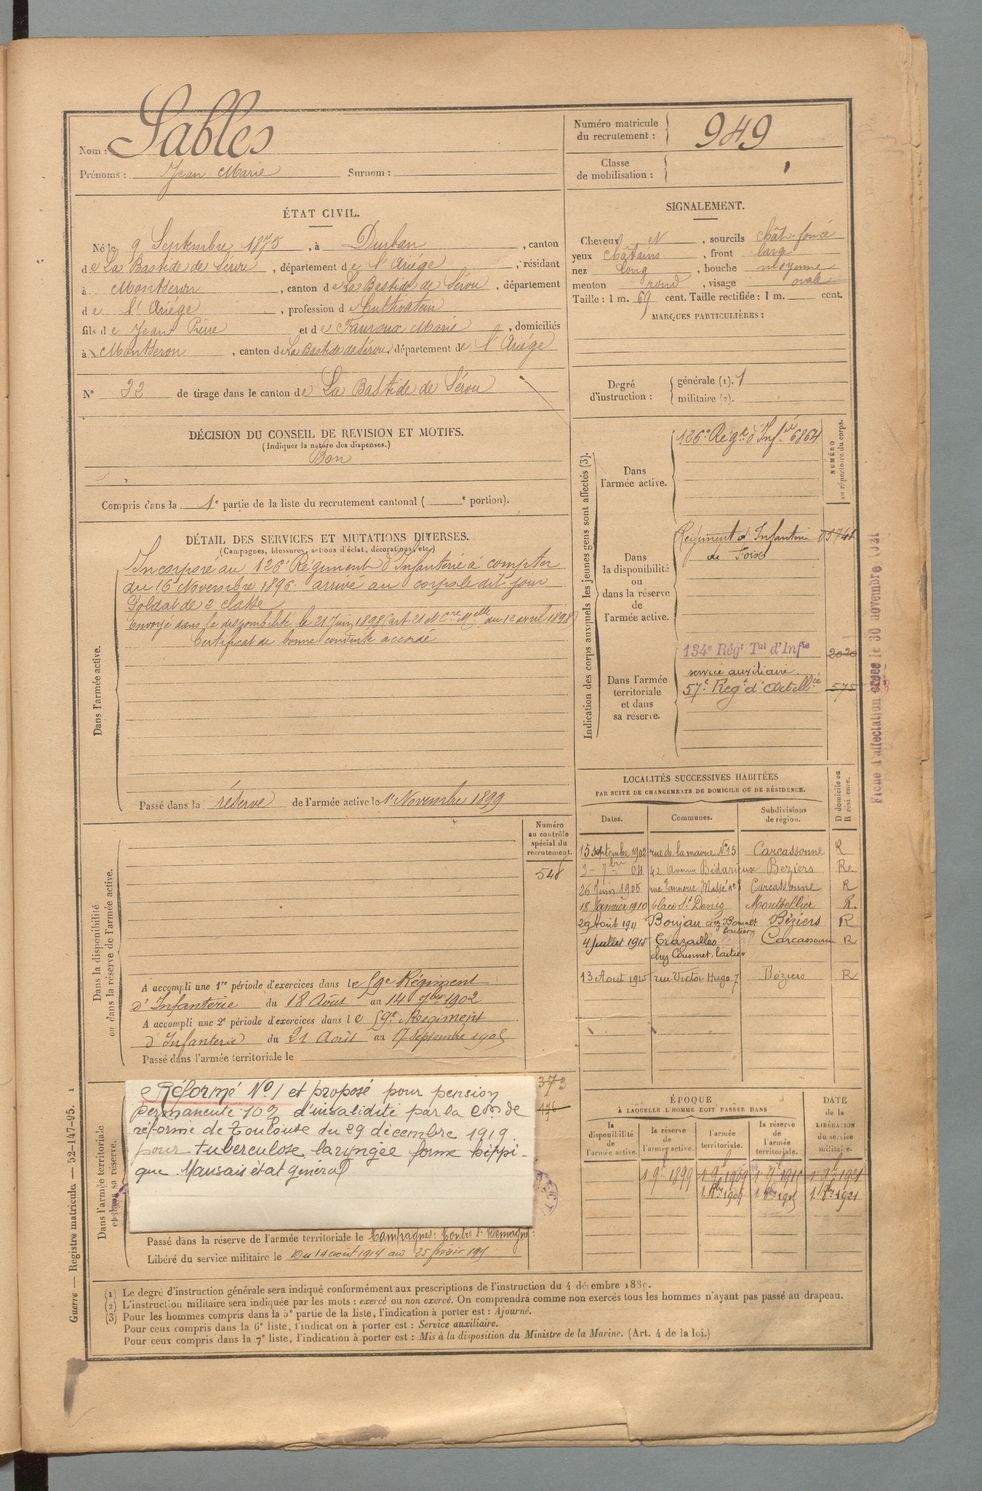 Nom : Sables
Prénoms : Jean Marie Surnom :
Numéro matricule du recrutement : 949
Classe de mobilisation :
ÉTAT CIVIL.
Né le 9 Septembre 1875, à Durban, canton
de La Bastide de Sérou, département de l'Ariége, résidant
à Montseron, canton de La Bastide de Sérou, département
de l'Ariége, profession de Cultivateur
fils de Jean Pierre et de Fauroux Marie, domiciliés
à Montseron, canton de La Bastide de Sérou, département de l'Ariége
N° 22 de tirage dans le canton de La Bastide de Sérou
SIGNALEMENT.
Cheveux N, sourcils chât. foncé
yeux châtains, front large
nez long, bouche moyenne
menton rond, visage ovale
Taille : 1 m. 69 cent. Taille rectifiée : 1 m. cent.
MARQUES PARTICULIÈRES :
Degré d'instruction : générale (1). 1
militaire (2).
DÉCISION DU CONSEIL DE REVISION ET MOTIFS.
(Indiquer la nature des dispenses.)
Bon
Compris dans la 1e partie de la liste du recrutement cantonal ( e portion).
DÉTAIL DES SERVICES ET MUTATIONS DIVERSES.
(Campagnes, blessures, actions d'éclat, décorations, etc.)
Dans l'armée active.
Incorporé au 126e Régiment d'Infanterie à compter
du 16 Novembre 1896. arrivé au corps le dit jour
Soldat de 2e classe
Envoyé dans la disponibilité le 21 Juin 1898
Certificat de bonne conduite accordé
Passé dans la réserve de l'armée active le 1er Novembre 1899
Indication des corps auxquels les jeunes gens sont affectés (3).
NUMÉRO au répertoire du corps.
Dans l'armée active.
126e Régt d'Infie 6864
Dans la disponibilité ou dans la réserve de l'armée active.
Régiment d'Infanterie
de Foix
Dans l'armée territoriale et dans sa réserve.
134e Régt Tal d'Infie 2020
service auxiliaire
57e Régt d'Artillie 575
Fiche d'affectation créée le 30 novembre
LOCALITÉS SUCCESSIVES HABITÉES
PAR SUITE DE CHANGEMENTS DE DOMICILE OU DE RÉSIDENCE.
Dates. Communes. Subdivisions de région. D domicile ou R résidence.
15 Septembre 1902 rue de la mairie N° 5 Carcassonne R
3 - 7bre 04 42 Avenue Bédarieux Beziers Re
26 Juin 1905 Carcassonne R
18 Janvier 1910 place St Denis Montpellier R.
29 Août 1911 Boujan Béziers R
4 Juillet 1915 Trazailles Carcassonne R
13 Aout 1915 rue Victor Hugo 7 Béziers R
Dans la disponibilité ou dans la réserve de l'armée active.
Numéro au contrôle spécial du recrutement.
548
A accompli une 1re période d'exercices dans le 59e Régiment
d'Infanterie du 18 Août au 14 7bre 1902
A accompli une 2e période d'exercices dans le 59e Régiment
d'Infanterie du 21 Août au 17 Septembre 1905
Passé dans l'armée territoriale le
Dans l'armée territoriale et dans sa réserve.
Réformé N° 1 et proposé pour pension
permanente 10% d'invalidité par la Con de
réforme de Toulouse du 29 décembre 1919
pour tuberculose laryngée forme hippi-
que. Mauvais état général
373
Passé dans la réserve de l'armée territoriale le Campagnes: Contre l'Allemagne
Libéré du service militaire le Du 19 août 1914 au 25 février 191
ÉPOQUE
À LAQUELLE L'HOMME DOIT PASSER DANS
DATE de la LIBÉRATION du service militaire.
la disponibilité de l'armée active. la réserve de l'armée active. l'armée territoriale. la réserve de l'armée territoriale.
Guerre. — Registre matricule. — 52-147-95.
(1) Le degré d'instruction générale sera indiqué conformément aux prescriptions de l'instruction du 4 décembre 1889.
(2) L'instruction militaire sera indiquée par les mots : exercé ou non exercé. On comprendra comme non exercés tous les hommes n'ayant pas passé au drapeau.
(3) Pour les hommes compris dans la 5e partie de la liste, l'indication à porter est : Ajourné.
Pour ceux compris dans la 6e liste, l'indication à porter est : Service auxiliaire.
Pour ceux compris dans la 7e liste, l'indication à porter est : Mis à la disposition du Ministre de la Marine. (Art. 4 de la loi.)